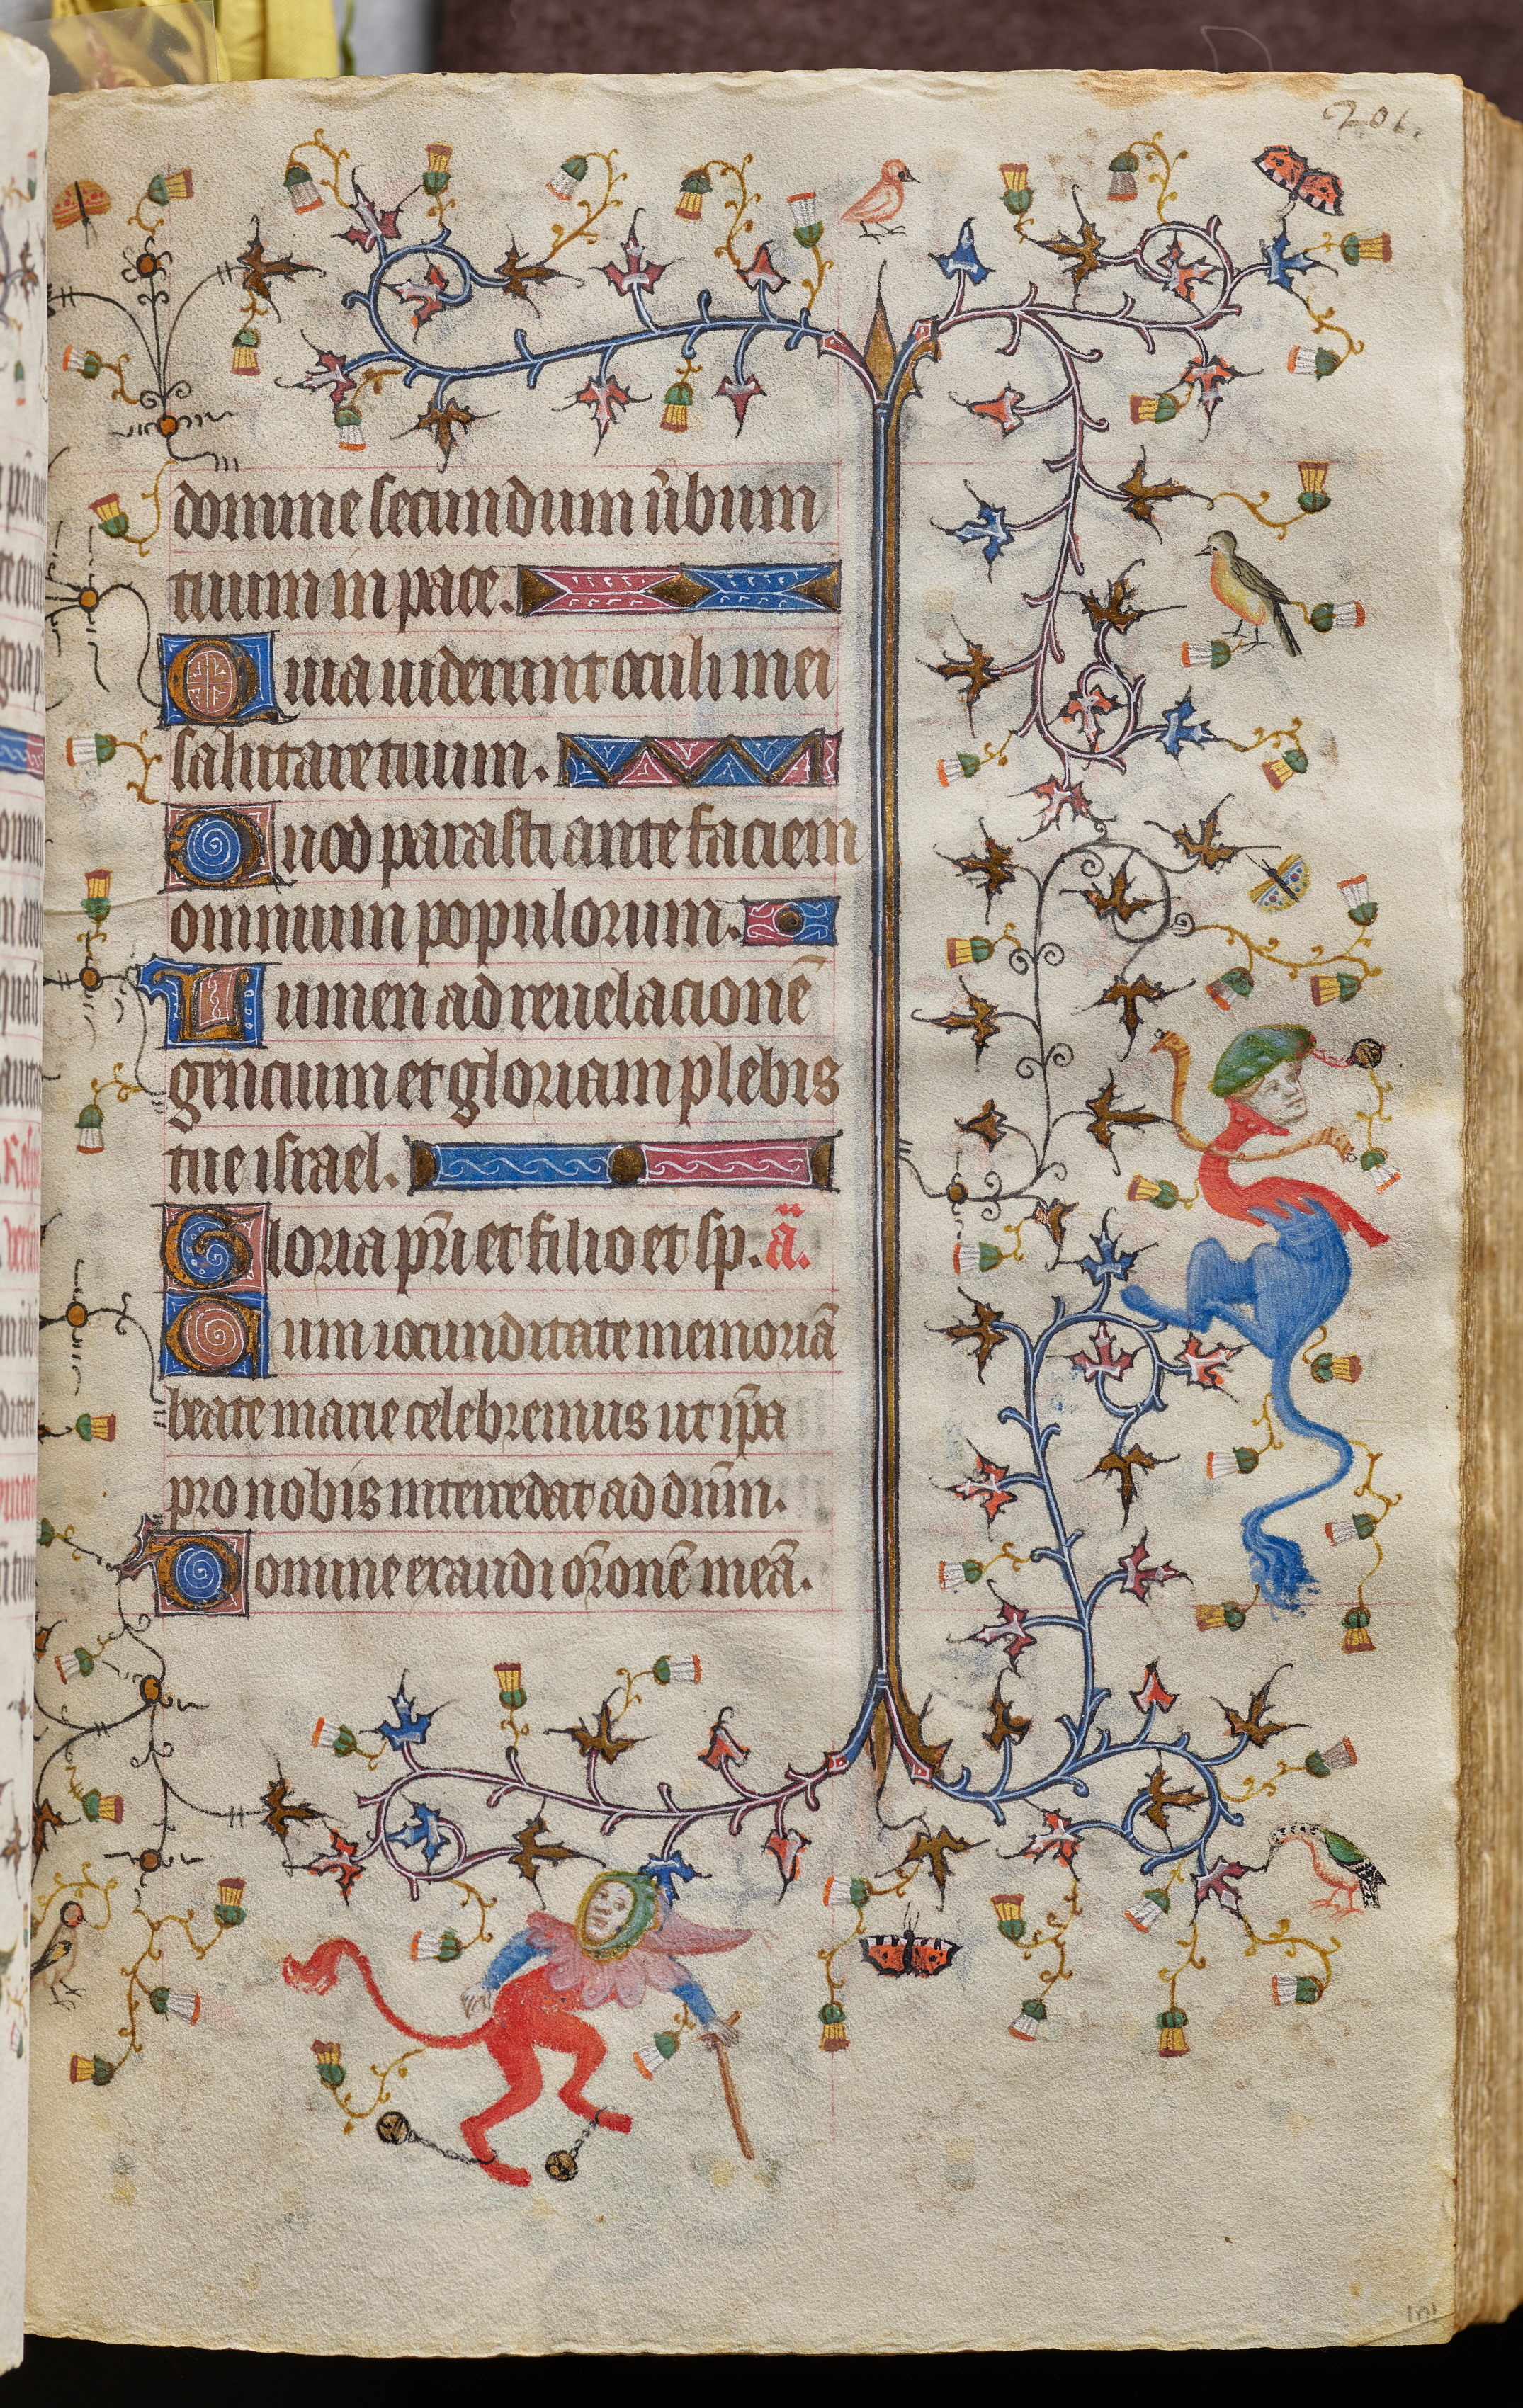 206.
domine secundum ũbum
tuum in pace.
Quia uiderunt oculi mei
salutare tuum.
Quod parasti ante faciem
omnium populorum.
Lumen ad reuelacionē
gencium et gloriam plebis
tue israel.
Gloria pr̄i et filio et sp. ā.
Cum iocunditate memoriā
beate marie celebremus ut ip̄a
pro nobis intercedat ad dn̄m.
Domine exaudi or̄onē meā.